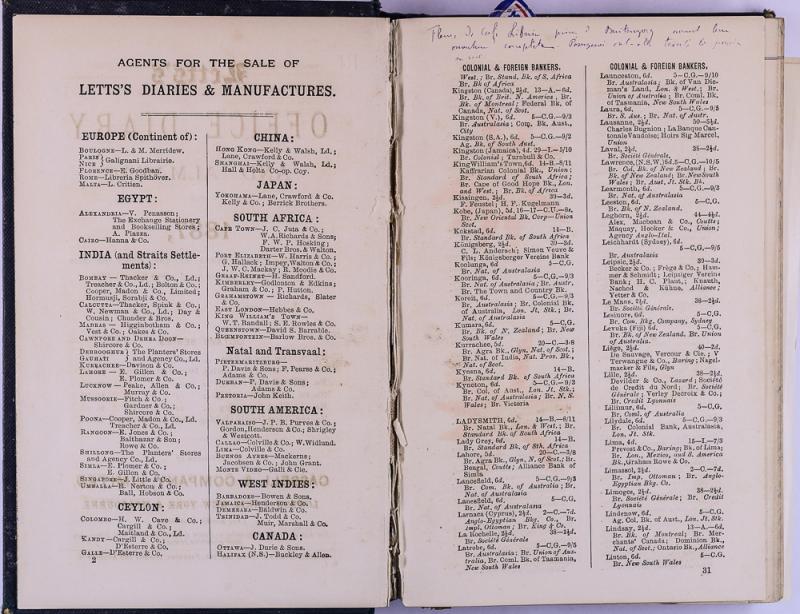 AGENTS FOR THE SALE OF
LETTS'S DIARIES & MANUFACTURES.
EUROPE (Continent of):
BOULOGNE—L. & M. Merridew.
PARIS } Galignani Librairie.
NICE
FLORENCE—E. Goodban.
ROME—Libreria Spithöver.
MALTA—L. Critien.
EGYPT:
ALEXANDRIA—V. Penasson;
The Exchange Stationery
and Bookselling Stores;
A. Piazza.
CAIRO—Hanna & Co.
INDIA (and Straits Settle-
ments):
BOMBAY — Thacker & Co., Ld.;
Treacher & Co., Ld.; Bolton & Co.;
Cooper, Madon & Co., Limited;
Hormusji, Sorabji & Co.
CALCUTTA—Thacker, Spink & Co.;
W. Newman & Co., Ld.; Day &
Cousin; Chunder & Bros.
MADRAS — Higginbotham & Co.;
Vest & Co.; Oakes & Co.
CAWNPORE AND DEHRA DOON—
Shircore & Co.
DEBROOGHUR } The Planters' Stores
GAUHATI } and Agency Co., Ld.
KURRACHEE—Davison & Co.
LAHORE — E. Gillon & Co.;
E. Plomer & Co.
LUCKNOW — Murray, Allen & Co.;
Murray & Co.
MUSSOORIE—Fitch & Co.;
Gardner & Co.;
Shircore & Co.
POONA—Cooper, Madon & Co., Ld.
Treacher & Co., Ld.
RANGOON—E. Jones & Co.;
Balthazar & Son;
Rowe & Co.
SHILLONG—The Planters' Stores
and Agency Co., Ld.
SIMLA—E. Plomer & Co.;
E. Gillon & Co.
SINGAPORE—J. Little & Co.
UMBALLA—B. Norton & Co.;
Ball, Hobson & Co.
CEYLON:
COLOMBO—H. W. Cave & Co.;
Cargill & Co.;
Maitland & Co., Ld.
KANDY—Cargill & Co.;
D'Esterre & Co.
GALLE—D'Esterre & Co.
2
CHINA:
HONG KONG—Kelly & Walsh, Ld.;
Lane, Crawford & Co.
SHANGHAI—Kelly & Walsh, Ld.;
Hall & Holtz Co-op. Coy.
JAPAN:
YOKOHAMA—Lane, Crawford & Co.
Kelly & Co.; Berrick Brothers.
SOUTH AFRICA:
CAPE TOWN—J. C. Juta & Co.;
W.A. Richards & Sons;
F. W. P. Hosking;
Darter Bros. & Walton.
PORT ELIZABETH—W. Harris & Co.;
G. Hallack; Impey, Walton & Co.;
J. W. C. Mackay; R. Moodie & Co.
GRAAF-REINET—H. Sandford.
KIMBERLEY—Godlonton & Edkins;
Graham & Co.; P. Hutton.
GRAHAMSTOWN — Richards, Slater
& Co.
EAST LONDON—Hebbes & Co.
KING WILLIAM'S TOWN—
W. T. Randall; S. E. Rowles & Co.
QUEENSTOWN—David S. Barrable.
BLOEMFONTEIN—Barlow Bros. & Co.
Natal and Transvaal:
PIETERMARITZBURG—
P. Davis & Sons; F. Fearse & Co.;
Adams & Co.
DURBAN—P. Davis & Sons;
Adams & Co.
PRETORIA—John Keith.
SOUTH AMERICA:
VALPARAISO—J. P. B. Purves & Co.;
Gordon, Henderson & Co.; Shrigley
& Westcott.
CALLAO—Colville & Co.; W. Widlund.
LIMA—Colville & Co.
BUENOS AYRES—Mackerne;
Jacobsen & Co.; John Grant.
MONTE VIDEO—Galli & Cie.
WEST INDIES:
BARBADOES—Bowen & Sons.
JAMAICA—Henderson & Co.
DEMERARA—Baldwin & Co.
TRINIDAD—J. Todd & Co.
Muir, Marshall & Co.
CANADA:
OTTAWA—J. Durie & Sons.
HALIFAX (N.S.)—Buckley & Allen.
COLONIAL & FOREIGN BANKERS.
West.; Br. Stand. Bk. of S. Africa
Br. Bk of Africa
Kingston (Canada), 2½d. 13—A.—6d.
Br. Bk. of Brit. N. America; Br.
Bk. of Montreal; Federal Bk. of
Canada, Nat. of Scot.
Kingston (V.), 6d. 5—C.G.—9/3
Br. Australasia; Com. Bk. Aust.,
City
Kingston (S.A.), 6d. 5—C.G.—9/2
Ag. Bk. of South Aust.
Kingston (Jamaica), 4d. 29—I.—5/10
Br. Colonial; Turnbull & Co.
King William's Town, 6d. 14-B.-8/11
Kaffrarian Colonial Bk., Union;
Br. Standard of South Africa;
Br. Cape of Good Hope Bk., Lon.
and West.; Br. Bk. of Africa
Kissingen, 2½d. 39—3d.
F. Feustel; H. F. Kugelmann
Kobe, (Japan), 5d. 16—17—C.—8s.
Br. New Oriental Bk. Corp—Union
Scot.
Kokstad, 6d. 14—B.
Br. Standard Bk. of South Africa
Königsberg, 2½d. 39—3d.
C. L. Andersch; Simon Veuve &
Fils; Königsberger Vereins Bank
Koolunga, 6d 5—C.G.
Br. Nat. of Australasia
Kooringa, 6d. 5—C.G.—9/3
Br. Nat. of Australasia; Br. Austr.
Br. The Town and Country Bk.
Koroit, 6d. 5—C.G.—9/3
Br. Australasia; Br. Colonial Bk.
of Australia, Lon. Jt. Stk.; Br.
Nat. of Australasia
Kumara, 6d. 5—C.G.
Br. Bk. of N. Zealand; Br. New
South Wales
Kurrachee, 5d. 20—C.—3-8
Br. Agra Bk., Glyn. Nat. of Scot.;
Br. Nat. of India, Nat. Prov. Bk.,
Nat. of Scot.
Kysena, 6d. 14—B.
Br. Standard Bk. of South Africa
Kyneton, 6d. 5—C.G.—9/3
Br. Col. of Aust., Lon. Jt. Stk.;
Br. Nat. of Australasia; Br. N. S.
Wales; Br. Victoria
LADYSMITH, 6d. 14—B.—8/11
Br. Natal Bk., Lon. & West.; Br.
Standard Bk. of South Africa
Lady Grey, 6d. 14—B.
Br. Standard Bk. of Sth. Africa
Lahore, 5d. 20—C.—3/8
Br. Agra Bk., Glyn. N. of Scot.; Br.
Bengal, Coutts; Alliance Bank of
Simla
Lancefield, 6d. 5—C.G.—9/3
Br. Com. Bk. of Australia; Br.
Nat. of Australasia
Lancefield, 6d. 5—C.G.
Br. Nat. of Australasia
Larnaca (Cyprus), 2½d. 2—C.—7d.
Anglo-Egyptian Bkg. Co., Br.
Impl. Ottoman; Br. King & Co.
La Rochelle, 2½d. 38—2½d.
Br. Société Générale
Latrobe, 6d. 5—C.G.—9/5
Br. Australasia; Br. Union of Aus-
tralia, Br. Coml. Bk. of Tasmania,
New South Wales
COLONIAL & FOREIGN BANKERS.
Launceston, 6d. 5—C.G.—9/10
Br. Australasia; Bk. of Van Die-
man's Land, Lon. & West.; Br.
Union of Australia; Br. Coml. Bk.
of Tasmania, New South Wales
Laura, 6d. 5—C.G.—9/5
Br. S. Aus.; Br. Nat. of Austr.
Lausanne, 2½d. 50—5½d.
Charles Bugnion; La Banque Can-
tonale Vaudoise; Hoirs Sig Marcel,
Union
Laval, 2½d. 38—2½d.
Br. Société Générale.
Lawrence, (N.S.W) 6d. 5.—C.G.—10/5
Br. Col. Bk. of New Zealand; Br.
Bk. of New Zealand; Br. New South
Wales; Br. Aust. Jt. Stk. Bk.
Learmonth, 6d. 5—C.G.—9/3
Br. Nat. of Australasia
Leeston, 6d. 5—C.G.
Br. Bk. of N. Zealand.
Leghorn, 2½d. 44—4½d.
Alex. Macbean & Co., Coutts;
Maquay, Hooker & Co., Union;
Agency Anglo-Ital.
Leichhardt (Sydney), 6d.
5—C.G.—9/5
Br. Australasia
Leipsic, 2½d. 39—3d.
Becker & Co.; Frège & Co.; Ham-
mer & Schmidt; Leipziger Vereins
Bank; H. C. Plaut; Knauth,
Nachod & Kühne, Alliance;
Vetter & Co.
Le Mans, 2½d. 38—2½d.
Br. Société Générale.
Lesmore, 6d. 5—C.G.
Br. Com. Bkg. Company, Sydney
Levuka (Fiji) 6d. 5—C.G.
Br. Bk. of New Zealand. Br. Union
of Australia.
Liège, 2½d. 40—2d.
De Sauvage, Vercour & Cie.; V
Terwangne & Co., Baring; Nagel-
macker & Fils, Glyn
Lille, 2½d. 38—2½d.
Devilder & Co., Lazard; Société
de Credit du Nord; Br. Société
Générale; Verley Decroix & Co.;
Br. Credit Lyonnais
Lillimur, 6d. 5—C.G.
Br. Coml. of Australia
Lilydale, 6d. 5—C.G.—9/3
Br. Colonial Bank, Australia,
Lon. Jt. Stk.
Lima, 4d. 15—I.—7/3
Prevost & Co., Baring; Bk. of Lima;
Br. Lon., Mexico, and S. America
Bk., Graham Rowe & Co.
Limassol, 2½d. 2—C.—7d.
Br. Imp. Ottoman; Br. Anglo-
Egyptian Bkg. Co.
Limoges, 2½d. 38—2½d.
Br. Société Générale; Br. Credit
Lyonnais
Lindenow, 6d. 5—C.G.
Ag. Col. Bk. of Aust., Lon. Jt. Stk.
Lindsay, 2½d. 13—A.—6d.
Br. of Montreal; Br. Mer-
chants' Canada; Dominion Bk.,
Nat. of Scot.; Ontario Bk., Alliance
Linton, 6d. 5—C.G.
Br. New South Wales
31